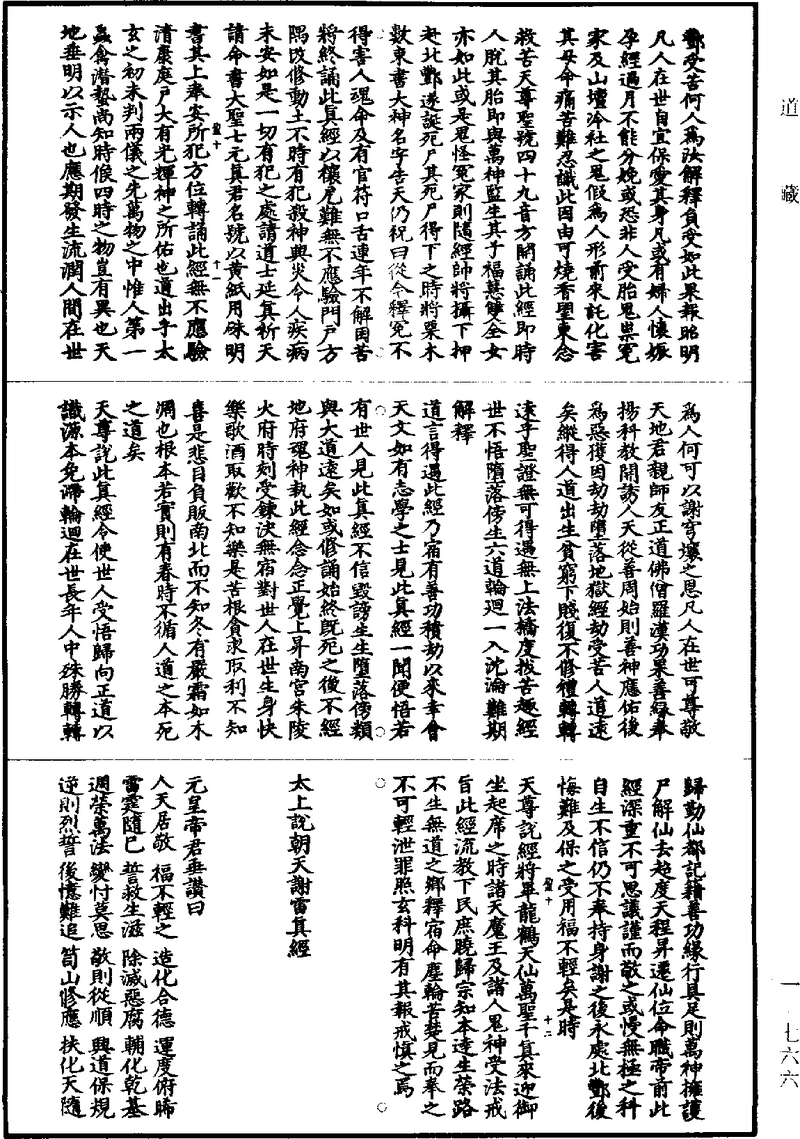 道藏
一·七六六
酆受苦何人爲汝解釋負受如此果報昭明
凡人在世自宜保愛其身凡或有婦人懷娠
孕經過月不能分娩或恐非人受胎鬼祟冤
家及山壇冷社之鬼假爲人形前來託化害
其母命痛苦難忍識此因由可燒香望東念
救苦天尊聖號四十九音方開誦此經即時
人脫其胎即與萬神監生其子福慧雙全女
亦如此或是鬼怪冤家則隨經師將攝下押
赴北酆遂誕死尸其死尸得下之時將栗木
數束書大神名字告天仍祝曰從今釋冤不
得害人魂命及有官符口舌連年不解困苦
將終誦此真經以禳厄難無不應驗門戶方
隅改修動土不時有犯殺神興災令人疾病
未安如是一切有犯之處請道士延真祈天
請命書大聖七元真君名號以黃紙用硃明
書其上奉安所犯方位轉誦此經無不應驗
聖十 十一
清康庭戶大有光輝神之所佑也道出乎太
玄之初未判兩儀之先萬物之中惟人第一
蟲禽潛蟄尚知時候四時之物豈有異也天
地垂明以示人也應期發生流潤人間在世
爲人何可以謝穹壤之恩凡人在世可尊敬
天地君親師友正道佛僧羅漢功果善緣奉
揚科教開誘人天從善周始則善神應佑後
爲惡獲因劫劫墮落地獄經劫受苦人道遠
矣縱得人道出生貧窮下賤復不修禮轉轉
遠乎聖證無可得遇無上法橋度拔苦趣經
世不悟墮落傍生六道輪迴一入沈淪難期
解釋
道言得遇此經乃宿有善功積劫以來幸會
天文如有志學之士見此真經一聞便悟若
有世人見此真經不信毀謗生生墮落傍類
與大道遠矣如或修誦始終既死之後不經
地府魂神執此經念念正覺上昇南宮朱陵
火府時刻受鍊決無宿對世人在世生身快
樂歌酒取歡不知樂是苦根貪求取利不知
喜是悲目負販南北而不知冬有嚴霜如木
凋也根本若實則有春時不循人道之本死
之道矣
天尊說此真經令使世人受悟歸向正道以
識源本免溺輪迴在世長年人中殊勝轉轉
歸勤仙都記籍善功緣行具足則萬神擁護
尸解仙去超度天程昇遷仙位命職帝前此
經深重不可思議謹而敬之或慢無極之科
自生不信仍不奉持身謝之後永處北酆後
悔難及保之受用福不輕矣是時
聖十 十二
天尊說經將畢龍鶴天仙萬聖千真來迎御
坐起席之時諸天魔王及諸人鬼神受法戒
旨此經流教下民庶曉歸宗知本達生榮路
不生無道之鄉釋宿命塵輪苦楚見而奉之
不可輕泄罪照玄科明有其報戒慎之焉
太上說朝天謝雷真經
元皇帝君垂讚曰
人天居敬 福不輕之 造化合德 運度俯晞
雷霆隨已 誓救生滋 除滅惡腐 輔化乾基
週榮萬法 變忖莫思 敬則從順 興道保規
逆則烈誓 後憶難追 筍山修應 扶化天隨